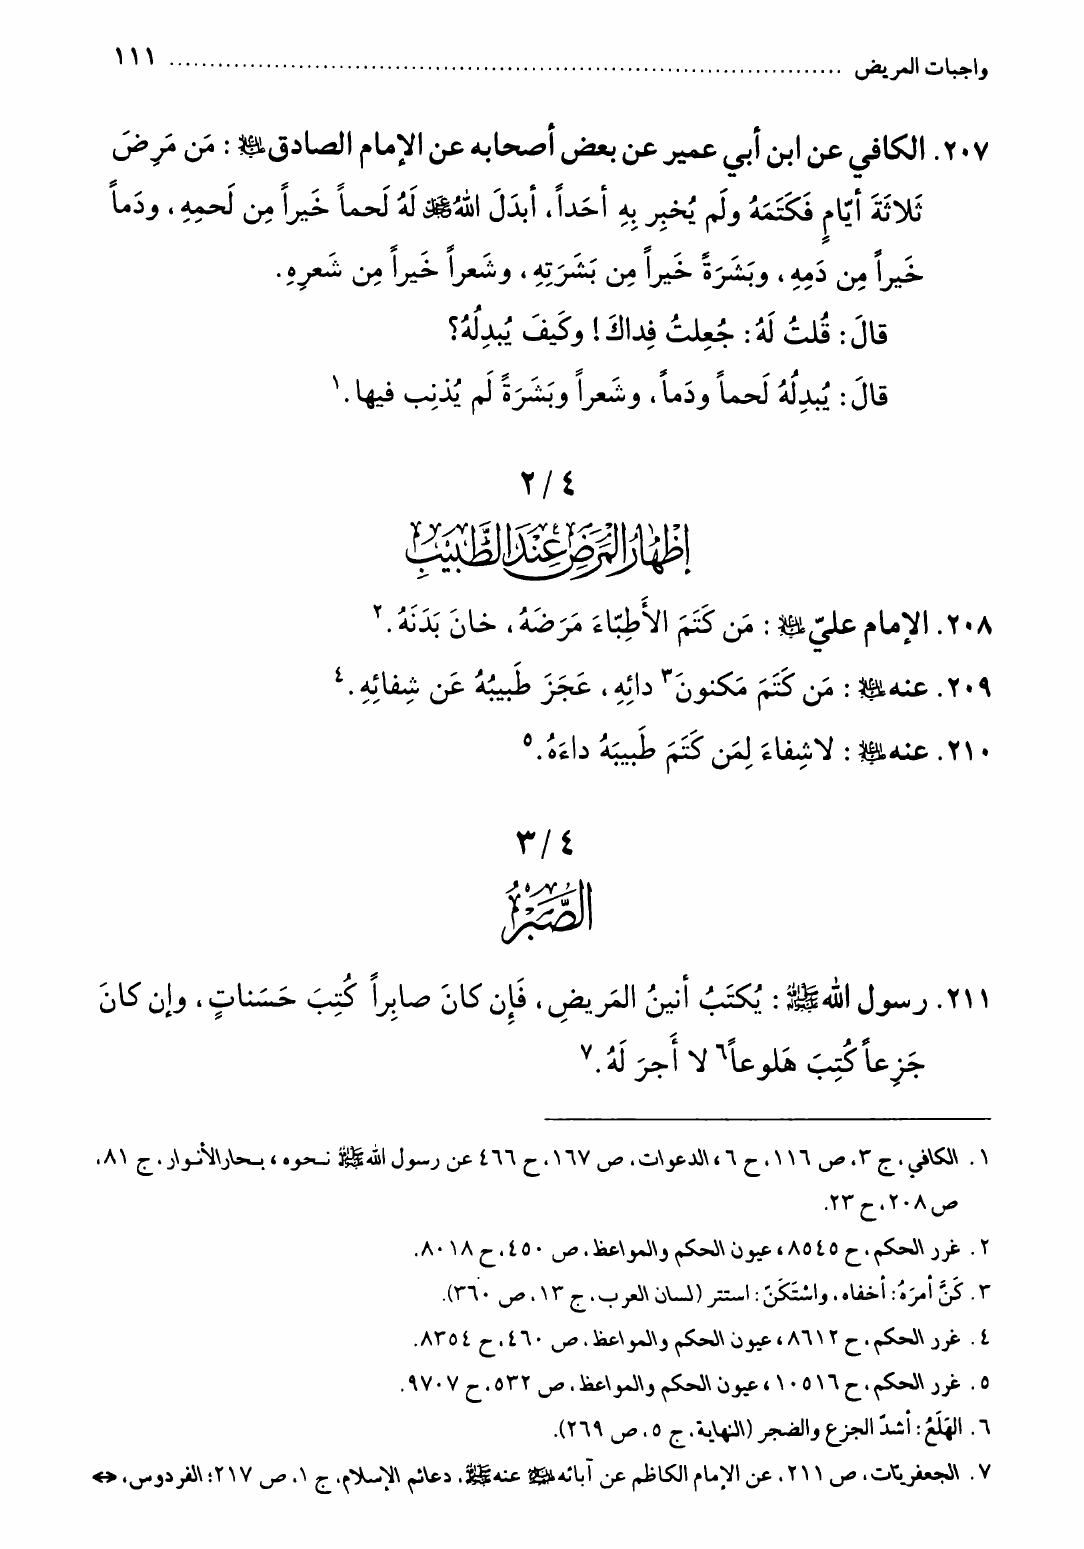 واجبات المريض ........................................................................ ١١١
٢٠٧. الكافي عن ابن أبي عمير عن بعض أصحابه عن الإمام الصادق ﵇ : مَن مَرِضَ
ثَلاثَةَ أيّامٍ فَكَتَمَهُ ولَم يُخبِر بِهِ أحَداً، أبدَلَ اللهُ ﷿ لَهُ لَحماً خَيراً مِن لَحمِهِ، ودَماً
خَيراً مِن دَمِهِ، وبَشَرَةً خَيراً مِن بَشَرَتِهِ، وشَعراً خَيراً مِن شَعرِهِ.
قالَ: قُلتُ لَهُ: جُعِلتُ فِداكَ! وكَيفَ يُبدِلُهُ؟
قالَ: يُبدِلُهُ لَحماً ودَماً، وشَعراً وبَشَرَةً لَم يُذنِب فيها.١
٢/٤
إظهارُ المَرَضِ عِندَ الطَّبيبِ
٢٠٨. الإمام عليّ ﵇ : مَن كَتَمَ الأَطِبّاءَ مَرَضَهُ، خانَ بَدَنَهُ.٢
٢٠٩. عنه ﵇ : مَن كَتَمَ مَكنونَ٣ دائِهِ، عَجَزَ طَبيبُهُ عَن شِفائِهِ.٤
٢١٠. عنه ﵇ : لاشِفاءَ لِمَن كَتَمَ طَبيبَهُ داءَهُ.٥
٣/٤
الصَّبرُ
٢١١. رسول الله ﷺ : يُكتَبُ أنينُ المَريضِ، فَإِن كانَ صابِراً كُتِبَ حَسَناتٍ، وإن كانَ
جَزِعاً كُتِبَ هَلوعاً٦ لا أَجرَ لَهُ.٧
١. الكافي، ج ٣، ص ١١٦، ح ٦؛ الدعوات، ص ١٦٧، ح ٤٦٦ عن رسول الله ﷺ نحوه؛ بحارالأنوار، ج ٨١،
ص ٢٠٨، ح ٢٣.
٢. غرر الحكم، ح ٨٥٤٥؛ عيون الحكم والمواعظ، ص ٤٥٠، ح ٨٠١٨.
٣. كَنَّ أمرَهُ: أخفاه، واسْتَكَنّ: استتر (لسان العرب، ج ١٣، ص ٣٦٠).
٤. غرر الحكم، ح ٨٦١٢؛ عيون الحكم والمواعظ، ص ٤٦٠، ح ٨٣٥٤.
٥. غرر الحكم، ح ١٠٥١٦؛ عيون الحكم والمواعظ، ص ٥٣٢، ح ٩٧٠٧.
٦. الهَلَعُ: أشدّ الجزع والضجر (النهاية، ج ٥، ص ٢٦٩).
٧. الجعفريّات، ص ٢١١، عن الإمام الكاظم عن آبائه ﵈ عنه ﷺ، دعائم الإسلام، ج ١، ص ٢١٧؛ الفردوس، ⇔